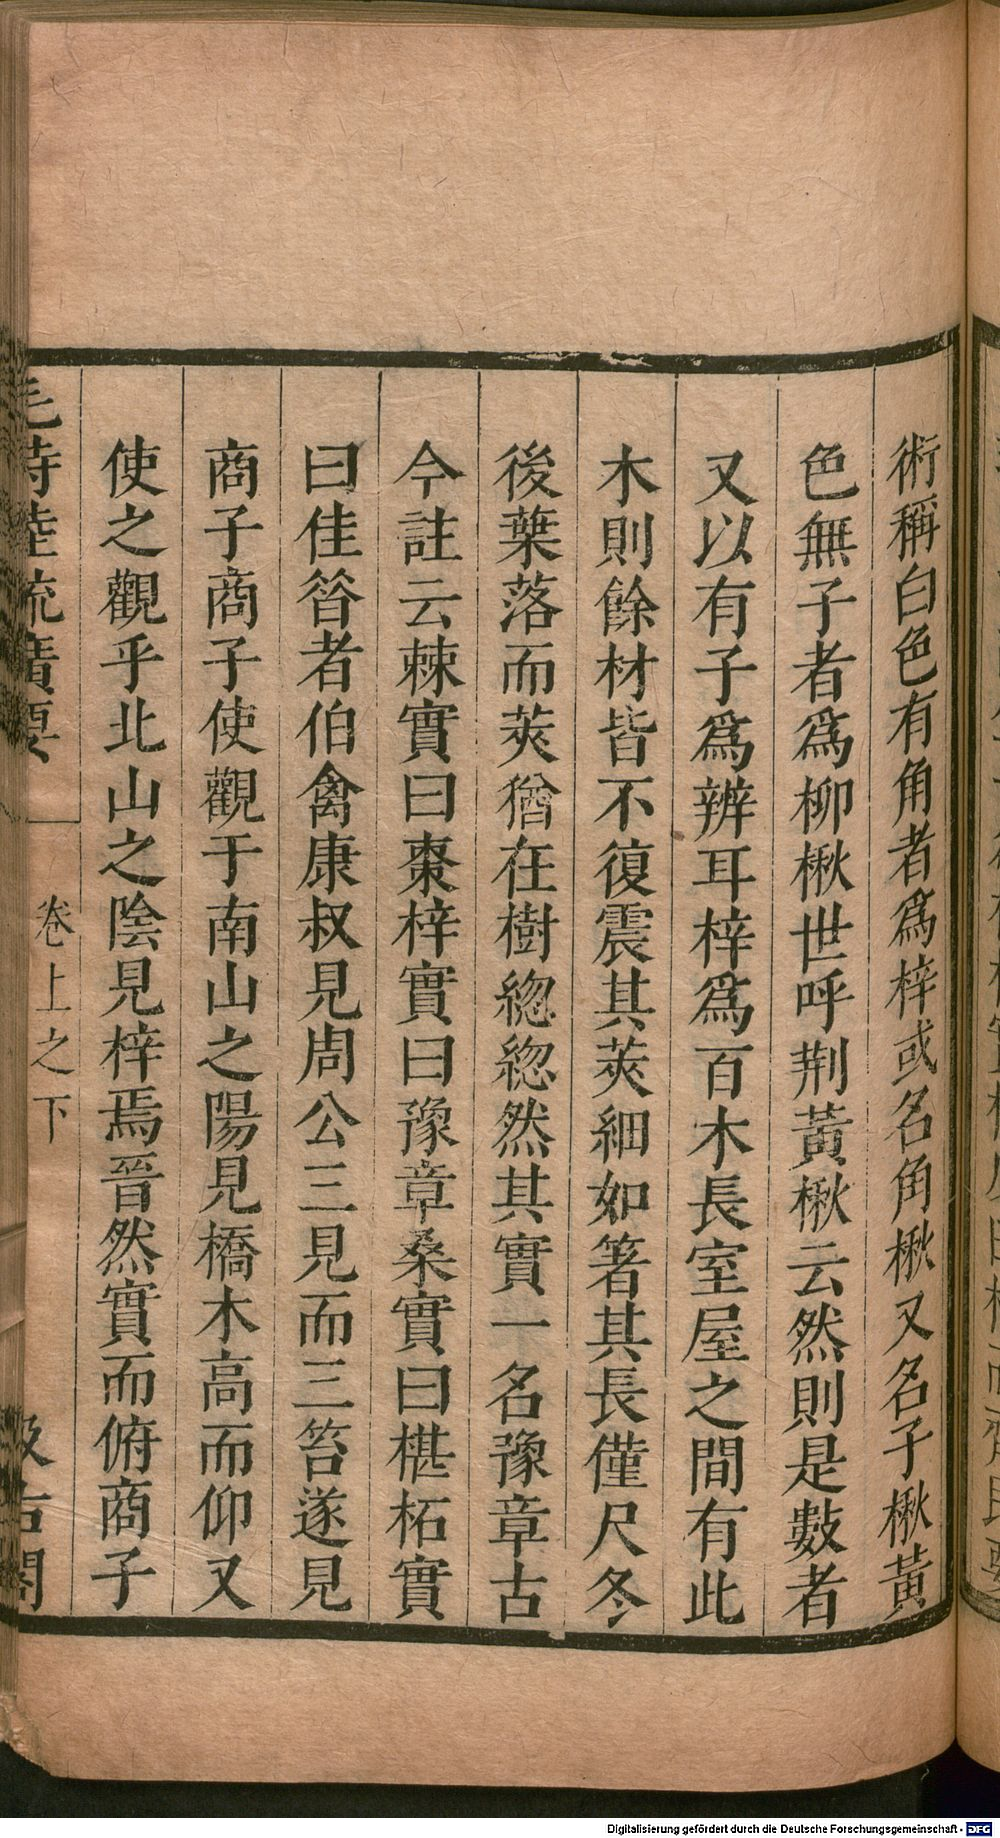 術稱白色有角者爲梓或名角楸又名子楸黃
色無子者爲柳楸世呼荆黃楸云然則是數者
又以有子爲辨耳梓爲百木長室屋之間有此
木則餘材皆不復震其莢細如箸其長僅尺冬
後葉落而莢猶在樹緫緫然其實一名豫章古
今註云棘實曰棗梓實曰豫章桑實曰椹柘實
曰佳筓者伯禽康叔見周公三見而三笞遂見
商子商子使觀于南山之陽見橋木高而仰又
使之觀乎北山之陰見梓焉晉然實而俯商子
毛詩陸疏廣要
卷上之下
汲古閣
Digitalisierung gefördert durch die Deutsche Forschungsgemeinschaft - DFG